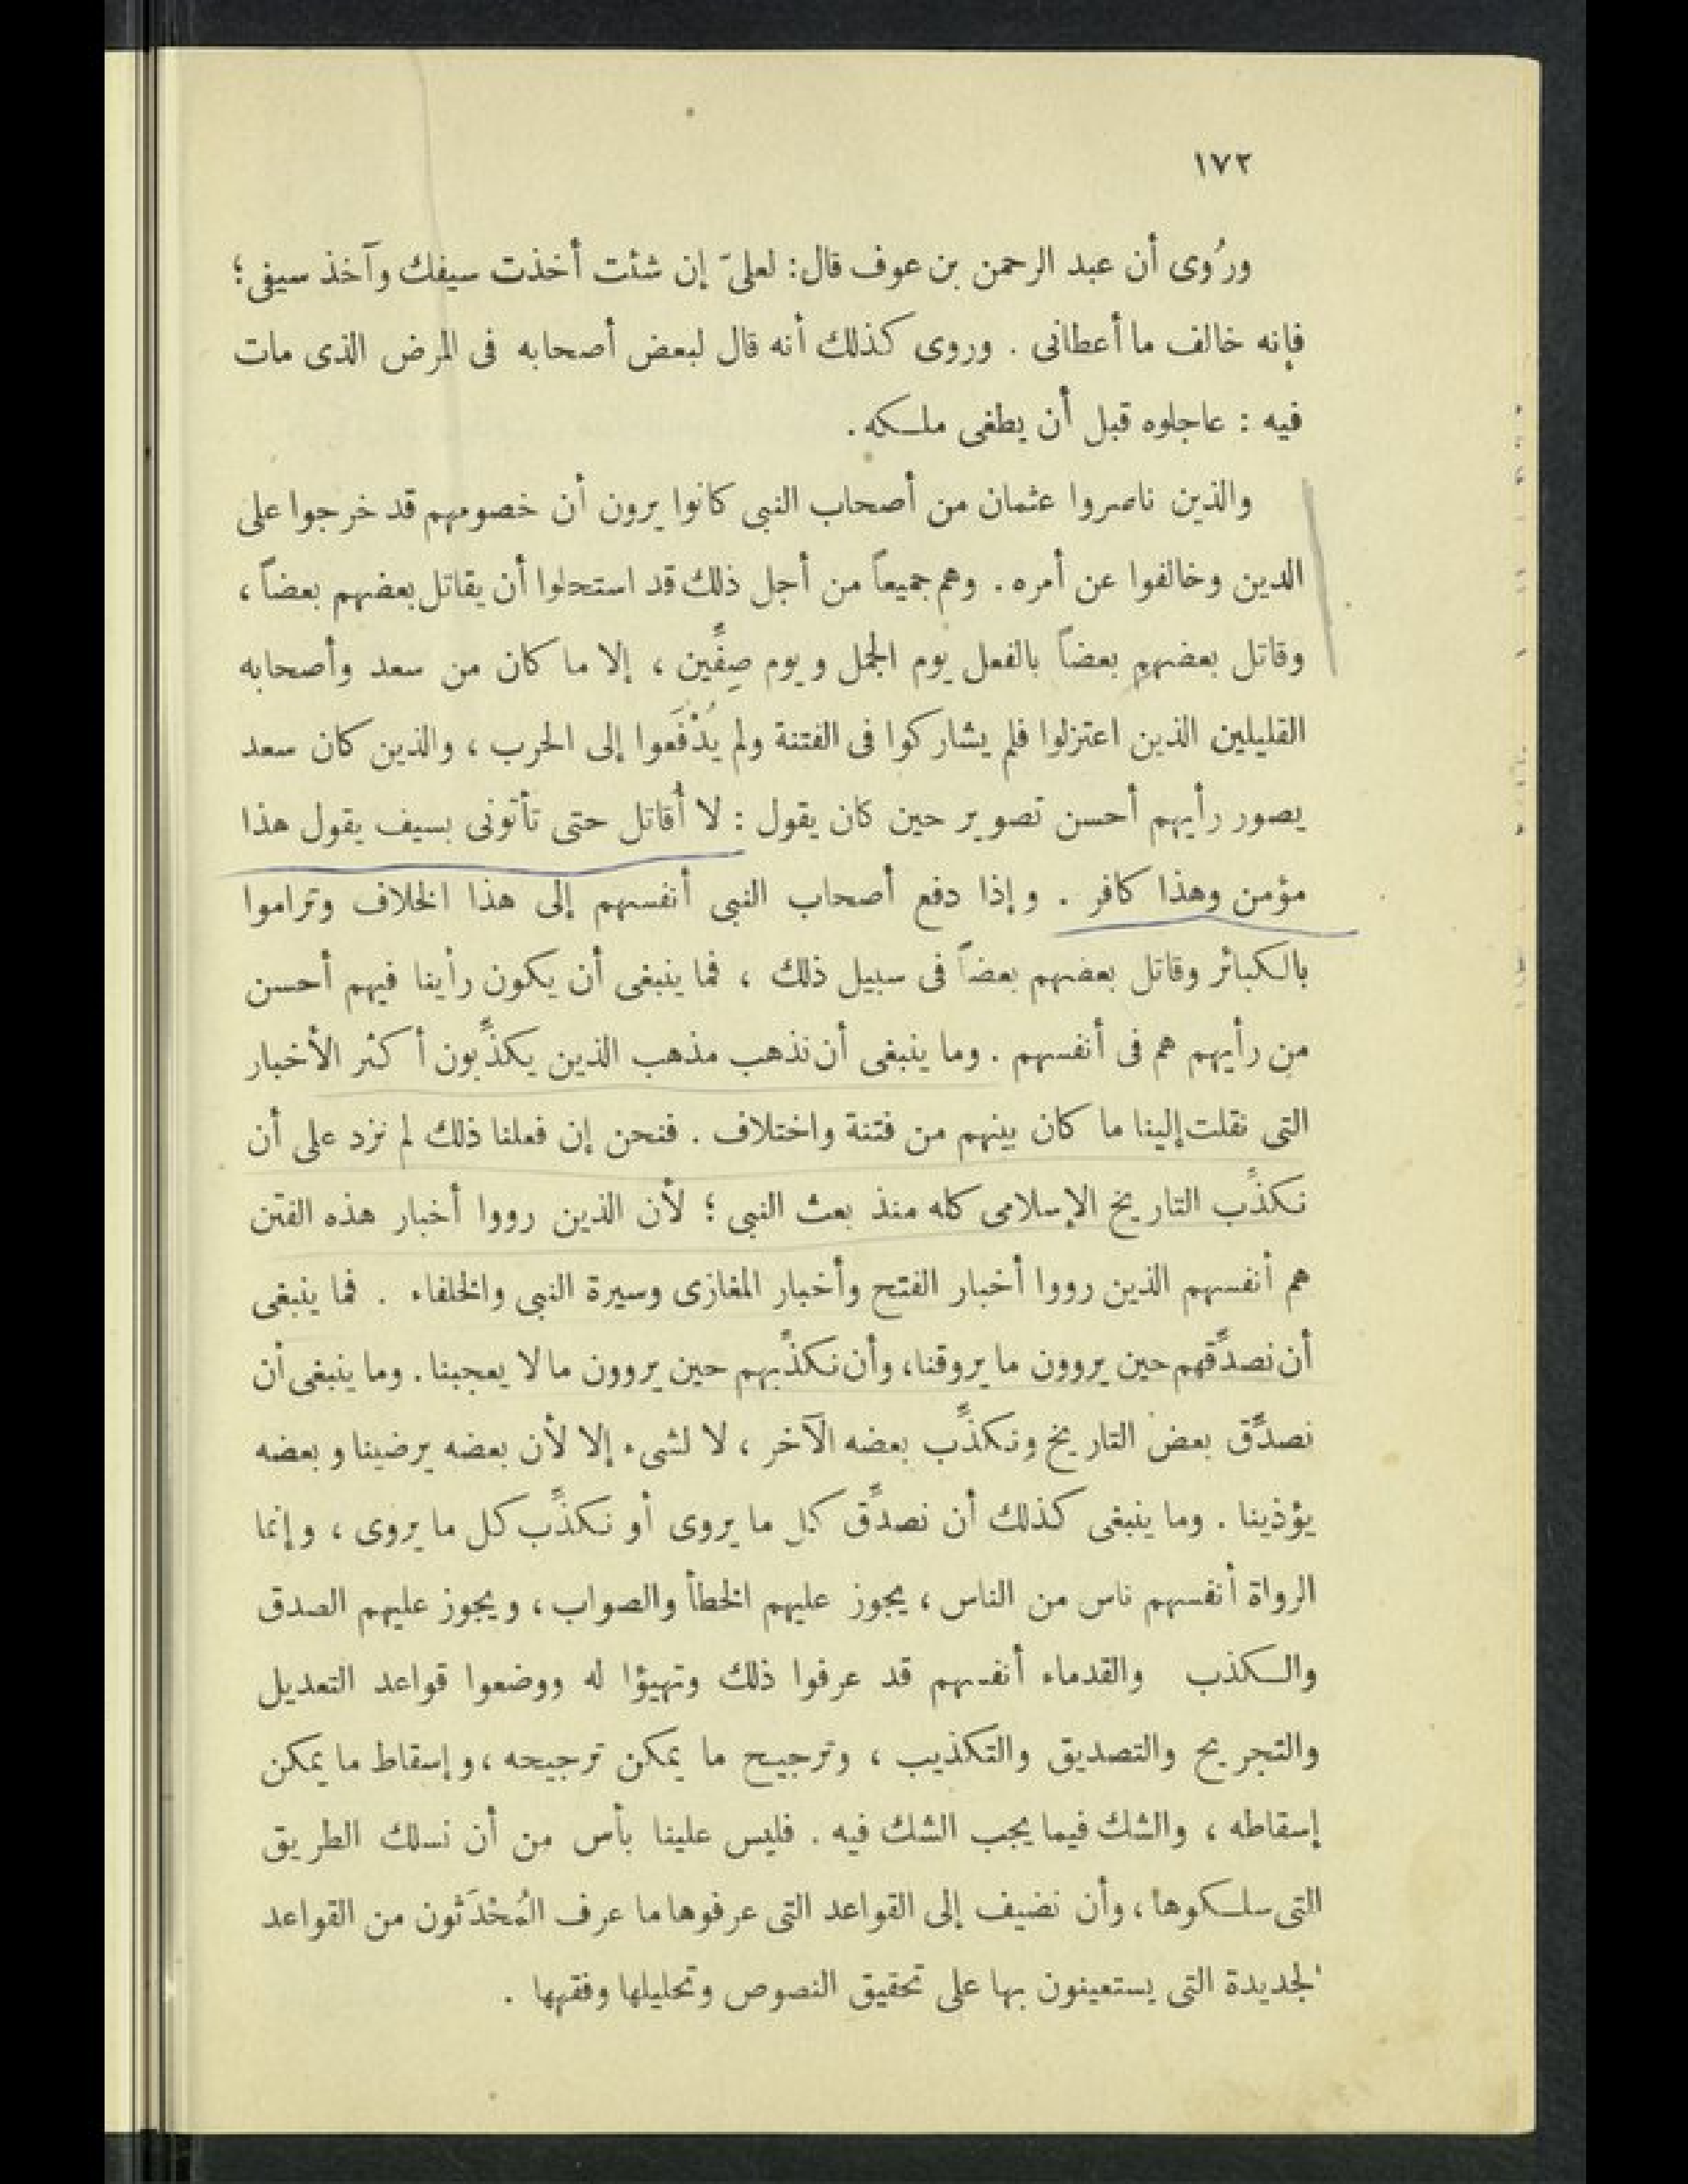 ١٧٢
ورُوى أن عبد الرحمن بن عوف قال: لعلىّ إن شئت أخذت سيفك وآخذ سيفى؛
فإنه خالف ما أعطانى . وروى كذلك أنه قال لبعض أصحابه فى المرض الذى مات
فيه : عاجلوه قبل أن يطغى ملكه .
والذين ناصروا عثمان من أصحاب النبى كانوا يرون أن خصومهم قد خرجوا على
الدين وخالفوا عن أمره . وهم جميعاً من أجل ذلك قد استحلوا أن يقاتل بعضهم بعضاً ،
وقاتل بعضهم بعضاً بالفعل يوم الجمل ويوم صِفِّين ، إلا ما كان من سعد وأصحابه
القليلين الذين اعتزلوا فلم يشاركوا فى الفتنة ولم يُدْفَعوا إلى الحرب ، والذين كان سعد
يصور رأيهم أحسن تصوير حين كان يقول : لا أُقاتل حتى تأتونى بسيف يقول هذا
مؤمن وهذا كافر . وإذا دفع أصحاب النبى أنفسهم إلى هذا الخلاف وتراموا
بالكبائر وقاتل بعضهم بعضاً فى سبيل ذلك ، فما ينبغى أن يكون رأينا فيهم أحسن
من رأيهم هم فى أنفسهم . وما ينبغى أن نذهب مذهب الذين يكذِّبون أكثر الأخبار
التى نقلت إلينا ما كان بينهم من فتنة واختلاف . فنحن إن فعلنا ذلك لم نزد على أن
نكذِّب التاريخ الإسلامى كله منذ بعث النبى ؛ لأن الذين رووا أخبار هذه الفتن
هم أنفسهم الذين رووا أخبار الفتح وأخبار المغازى وسيرة النبى والخلفاء . فما ينبغى
أن نصدِّقهم حين يروون ما يروقنا، وأن نكذِّبهم حين يروون ما لا يعجبنا . وما ينبغى أن
نصدِّق بعض التاريخ ونكذِّب بعضه الآخر ، لا لشىء إلا لأن بعضه يرضينا وبعضه
يؤذينا . وما ينبغى كذلك أن نصدِّق كل ما يروى أو نكذِّب كل ما يروى ، وإنما
الرواة أنفسهم ناس من الناس ، يجوز عليهم الخطأ والصواب ، ويجوز عليهم الصدق
والكذب والقدماء أنفسهم قد عرفوا ذلك وتهيؤا له ووضعوا قواعد التعديل
والتجريح والتصديق والتكذيب ، وترجيح ما يمكن ترجيحه ، وإسقاط ما يمكن
إسقاطه ، والشك فيما يجب الشك فيه . فليس علينا بأس من أن نسلك الطريق
التى سلكوها ، وأن نضيف إلى القواعد التى عرفوها ما عرف المُحْدَثون من القواعد
الجديدة التى يستعينون بها على تحقيق النصوص وتحليلها وفقهها .